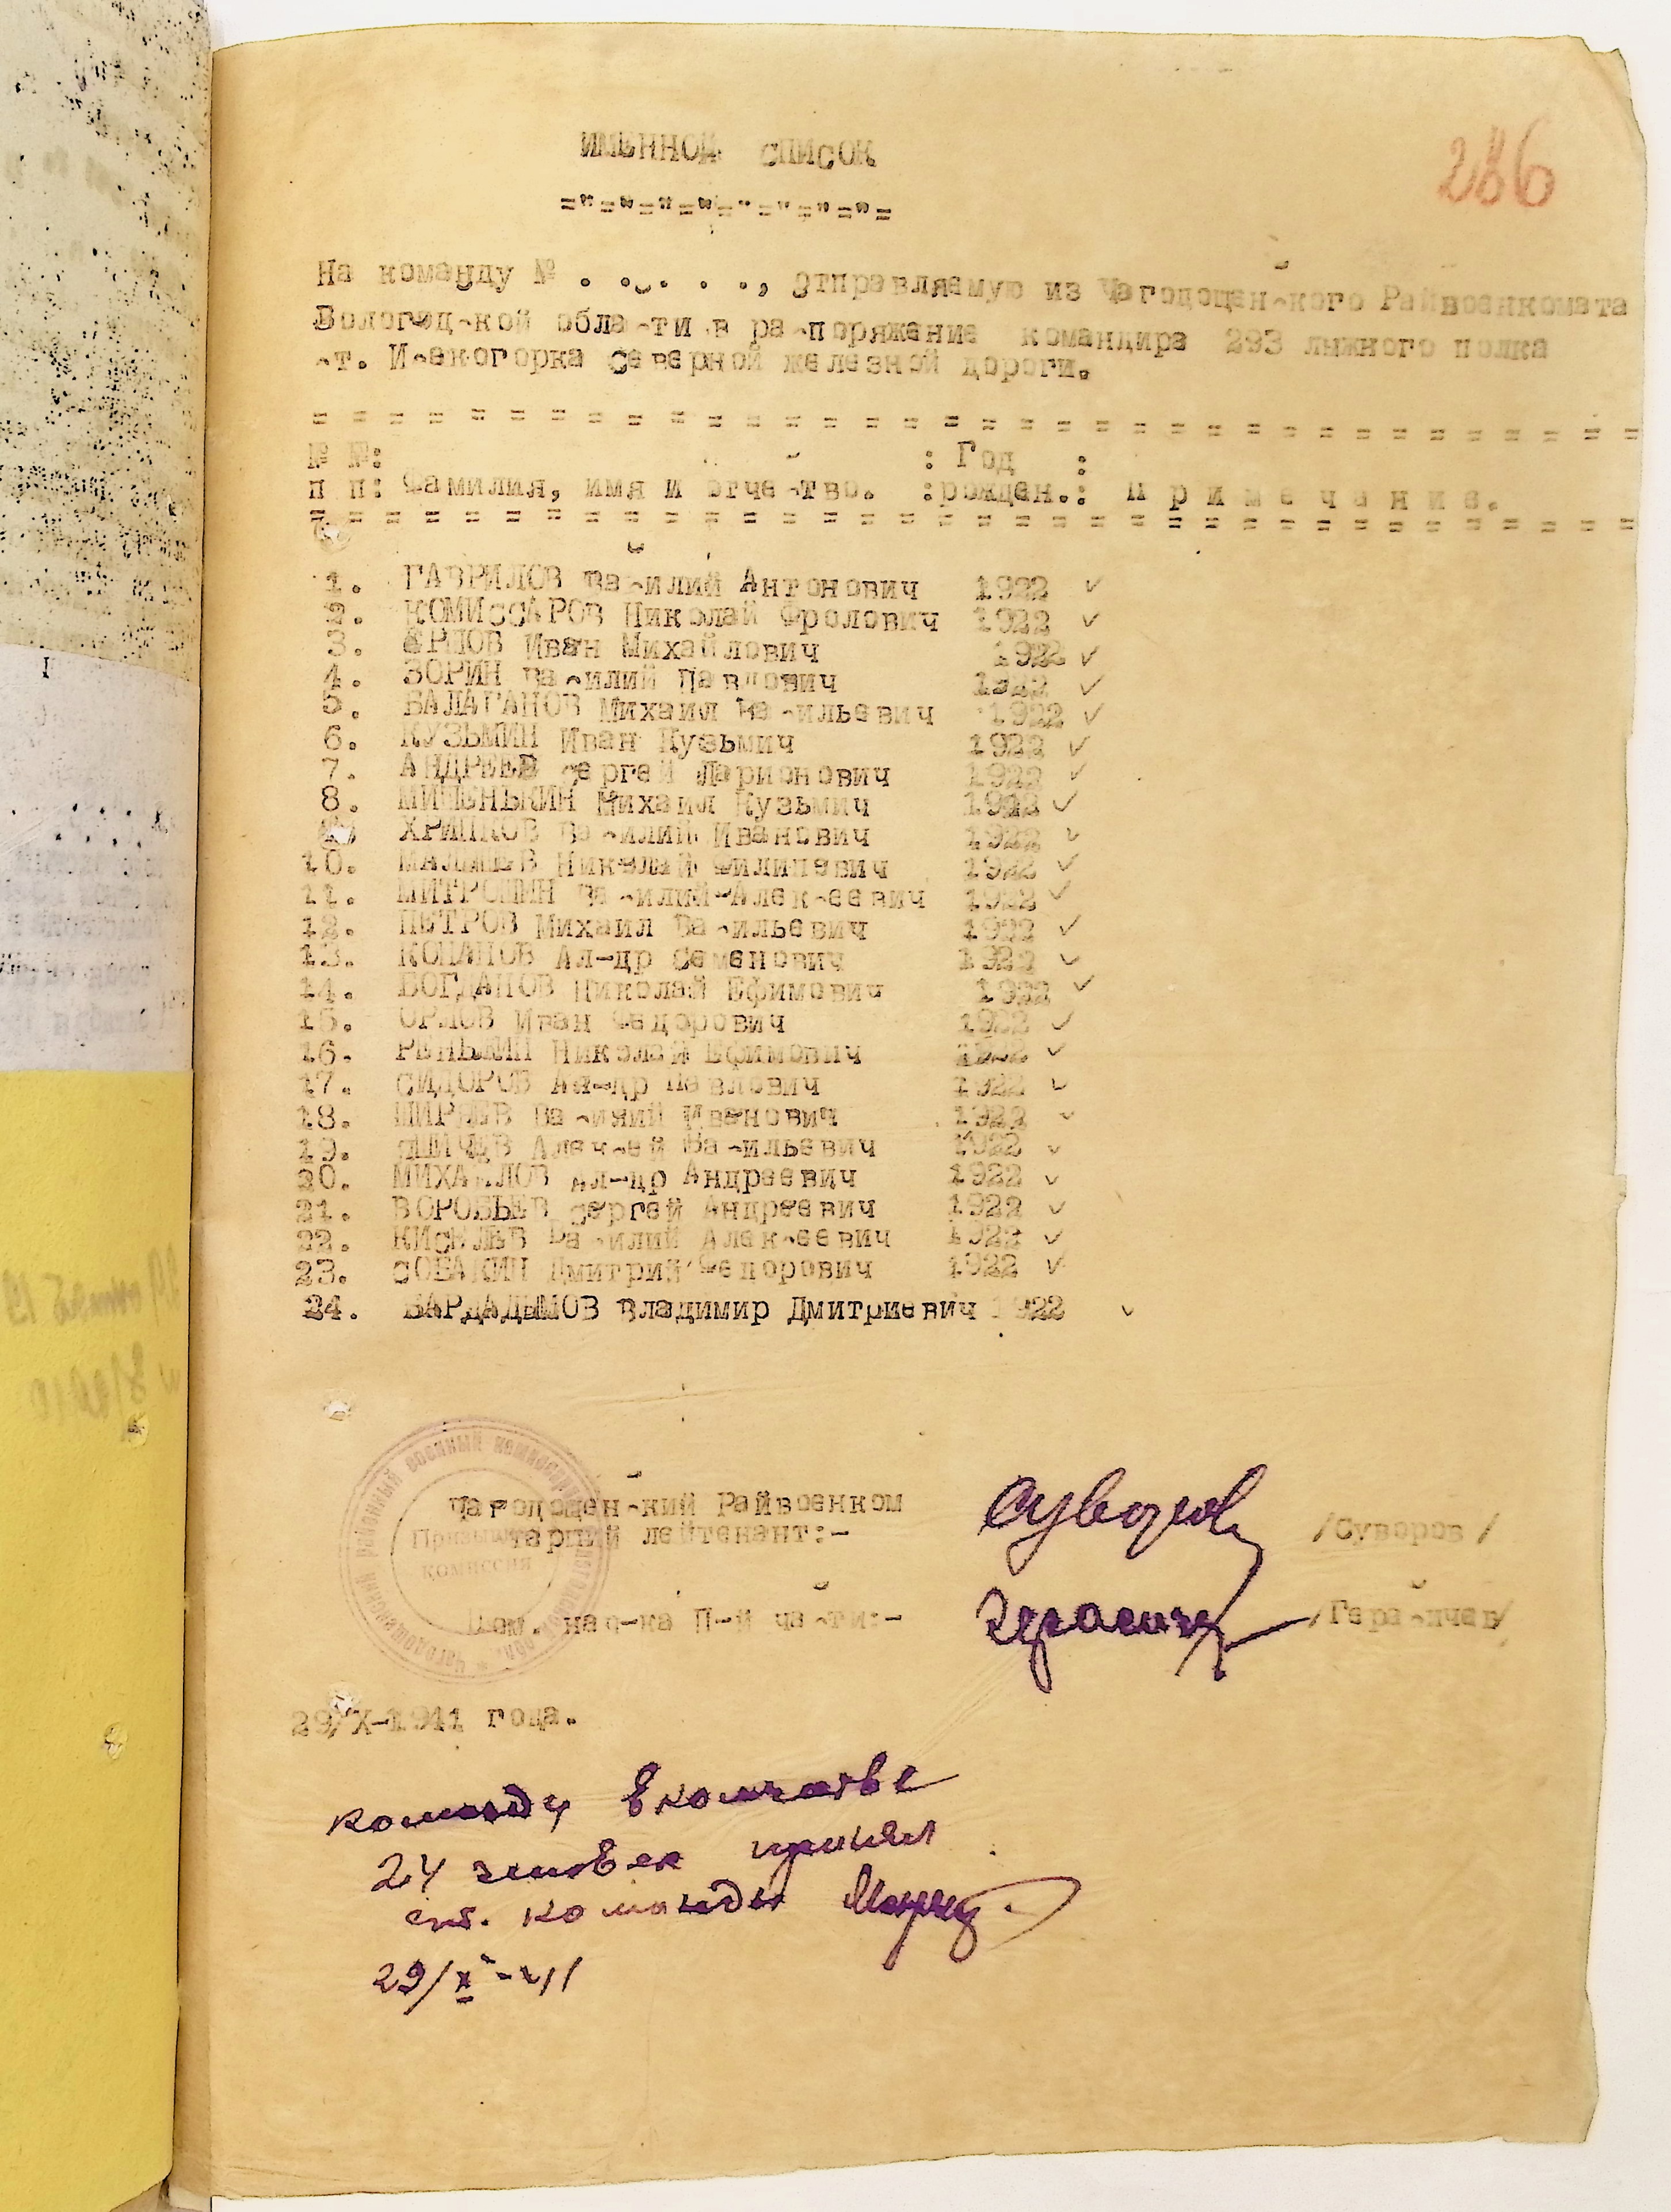 286
ИМЕННОЙ СПИСОК
="="="="="="="="=
На команду № . . . . ., отправляемую из Чагодощенского Райвоенкомата
Вологодской области в распоряжение командира 293 лыжного полка
ст. Исакогорка Северной железной дороги.
№ №: : Год :
п п: Фамилия, имя и отчество. :рожден.: П р и м е ч а н и е.
1. ГАВРИЛОВ Василий Антонович 1922 ✓
2. КОМИССАРОВ Николай Фролович 1922 ✓
3. ОРЛОВ Иван Михайлович 1922 ✓
4. ЗОРИН Василий Павлович 1922 ✓
5. БАЛАГАНОВ Михаил Васильевич 1922 ✓
6. КУЗЬМИН Иван Кузьмич 1922 ✓
7. АНДРЕЕВ Сергей Ларионович 1922 ✓
8. МИШЕНЬКИН Михаил Кузьмич 1922 ✓
ХРИПКОВ Василий Иванович 1922 ✓
10. МАЛЫШЕВ Николай Филипевич 1922 ✓
11. МИТРОШИН Василий Алексеевич 1922 ✓
12. ПЕТРОВ Михаил Васильевич 1922 ✓
13. КОПАНОВ Ал-др Семенович 1922 ✓
14. БОГДАНОВ Николай Ефимович 1922 ✓
15. ОРЛОВ Иван Федорович 1922 ✓
16. Николай Ефимович 1922 ✓
17. СИДОРОВ Ал-др Павлович 1922 ✓
18. ШИРЯЕВ Василий Иванович 1922 ✓
19. Алексей Васильевич 1922 ✓
20. МИХАЙЛОВ Ал-др Андреевич 1922 ✓
21. ВОРОБЬЕВ Сергей Андреевич 1922 ✓
22. КИСЕЛЕВ Василий Алексеевич 1922 ✓
23. СОБАКИН Дмитрий Федорович 1922 ✓
24. ВАРДАДЫМОВ Владимир Дмитриевич 1922 ✓
Чагодощенский районный военный комиссариат
Призывная
комиссия
Чагодощенский Райвоенком
старший лейтенант:- Суворов /Суворов/
Пом. нач-ка П-й части:- Герасичев /Герасичев/
29/X-1941 года.
команду в количестве
24 человек принял
ст. команды
29/X-41